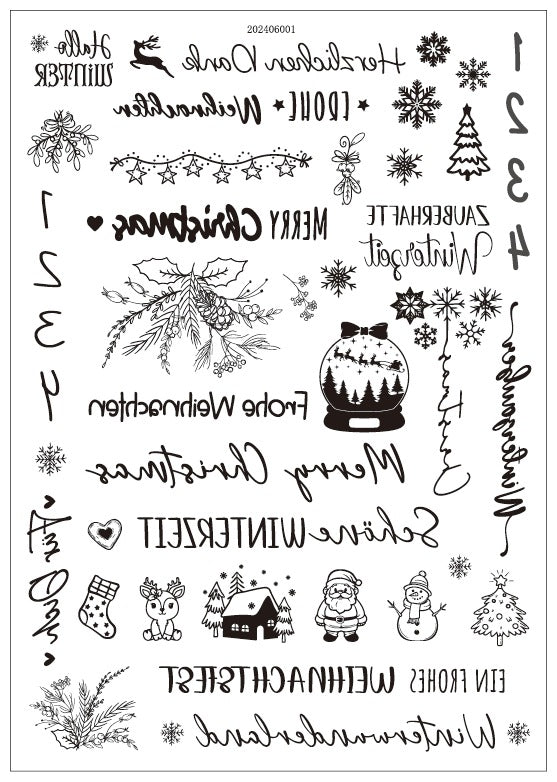 202406001
Hallo
WINTER
Herzlichen Dank
FROHE Weihnachten
MERRY Christmas
ZAUBERHAFTE
Winterzeit
1
2
3
4
1
2
3
4
Frohe Weihnachten
Merry Christmas
Schöne WINTERZEIT
Für Oma
EIN FROHES WEIHNACHTSFEST
Winterwunderland